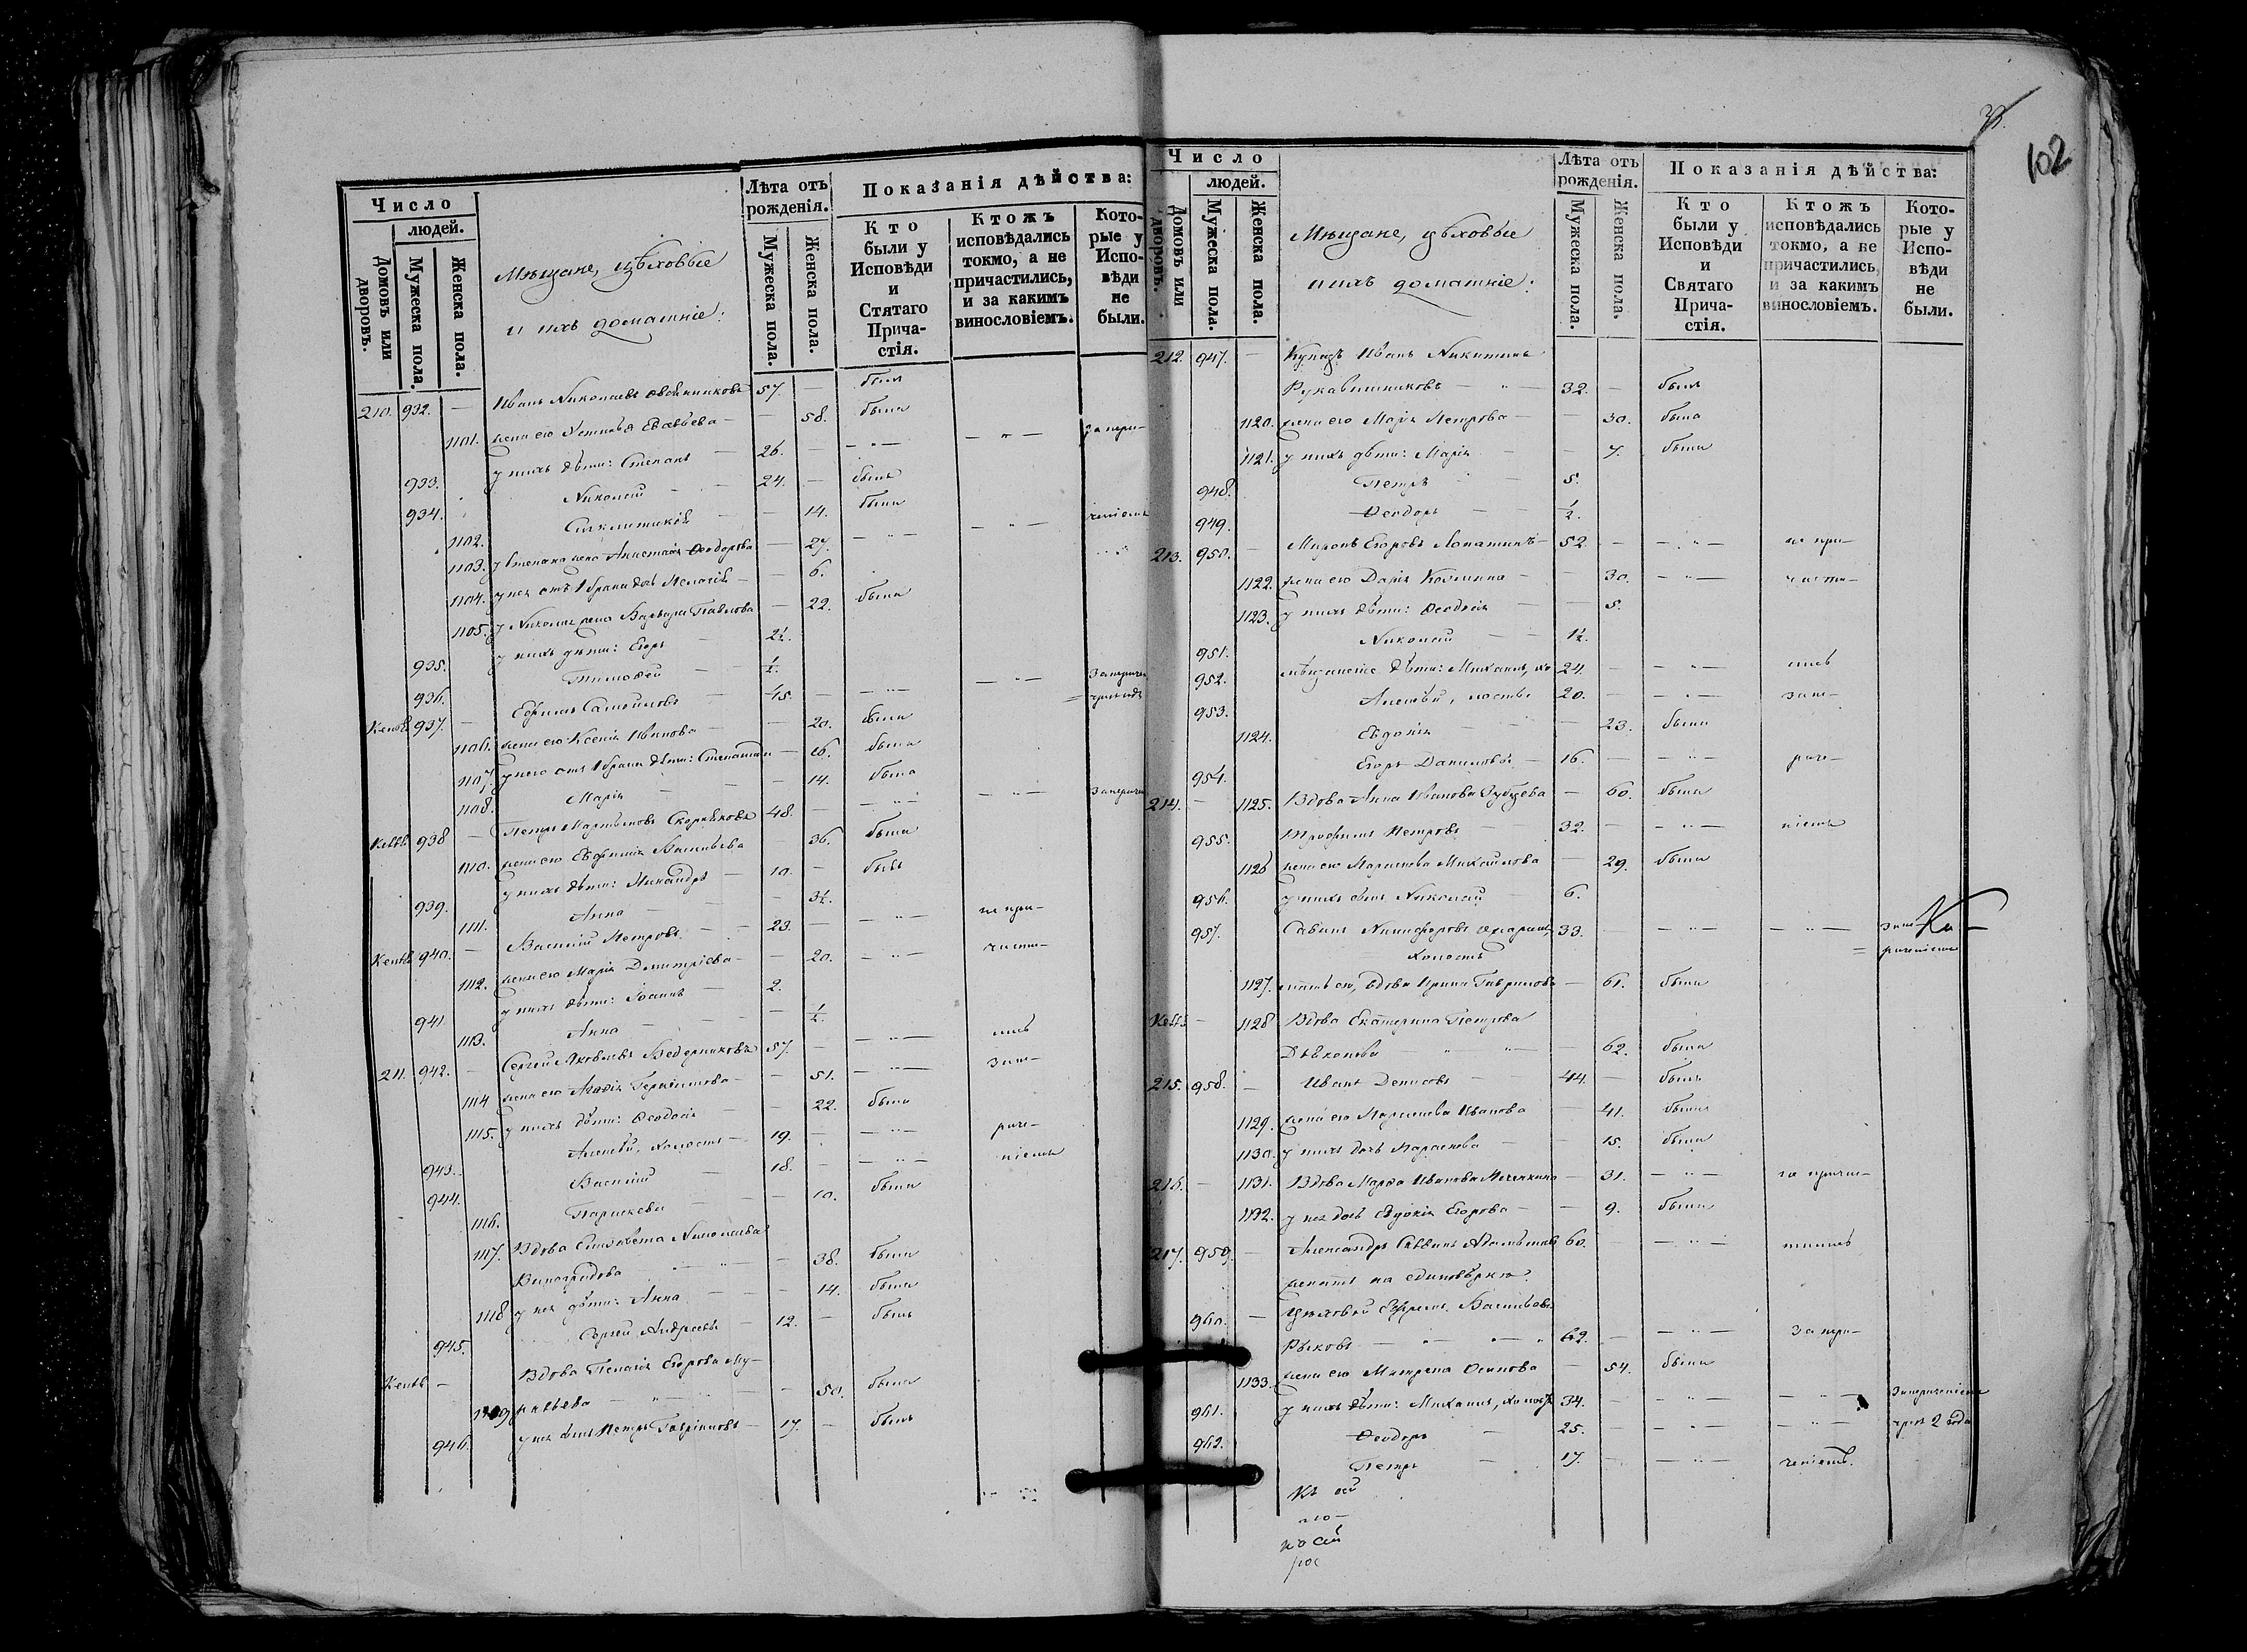 Число
людей.
Домовъ или дворовъ.
Мужеска пола.
Женска пола.
Мѣщане, цѣховые
и ихъ домашніе:
Лѣта отъ рожденія.
Мужеска пола.
Женска пола.
Показанія дѣйства:
Кто были у Исповѣди и Стятаго Причастія.
Ктожъ исповѣдались токмо, а не причастились, и за какимъ винословіемъ.
Которые у Исповѣди не были.
210. 932. — Иванъ Николаевъ Овсянниковъ 57. — былъ
1101. жена его Устинья Евсевьева — — 58. была
933. у нихъ дѣти: Степанъ — 26. — — „ — — „ — за нера-
934. Николай — — 24. — былъ
1102. Синклитикія — — 14. была
1103. у Степана жена Анастасія Ѳеодорова — 27. — „ — — „ — ченіемъ
1104. у нея отъ 1 брака дочь Пелагія — — 6.
1105. у Николая жена Варвара Павлова — 22. была
935. у нихъ дѣти: Егоръ 2½.
936. Тимоѳей — — ½.
937. — Ефимъ Самойловъ — 45. — — „ — — „ —
1106. жена его Ксенія Иванова — — 20. была
1107. у него отъ 1 брака дѣти: Степанида — 16. была
1108. Марія — — — 14. была
938 — Петръ Мартыновъ Скорняковъ 48. — — „ — — „ —
1110. жена его Евфимія Васильева 36. была
939. у нихъ дѣти: — 10. — былъ
1111. Анна — — — 3½.
940. — Василій Петровъ — — 23. — — „ — не при-
1112. жена его Марія Димитріева — — 20. — „ — части-
941 у нихъ дѣти: Іоаннъ — 2.
1113. Анна — — — ½.
211. 942. — Сергей Яковлевъ Ведерниковъ 57. — — „ — лись
1114 жена его — 51. — „ — за не-
1115. у нихъ дѣти: Ѳеодосія — — 22. была
943. Алексѣй, холостъ — 19. — — „ — раче-
944. Василій — 18. — — „ — ніемъ
1116. Параскева — — 10. была
1117. Вдова Елисавета Николаева
Виноградова — „ — — 38. была
1118 у нея дѣти: Анна — — 14. была
945. Сергей Андреевъ — 12. — былъ
— Вдова Пелагія Егорова Му-
— „ — — 50. была
946. у нея сынъ Петръ Гавриловъ — 17. — былъ
102
Число
людей.
Домовъ или дворовъ.
Мужеска пола.
Женска пола.
Мѣщане, цѣховые
и ихъ домашніе:
Лѣта отъ рожденія.
Мужеска пола.
Женска пола.
Показанія дѣйства:
Кто были у Исповѣди и Святаго Причастія.
Ктожъ исповѣдались токмо, а не причастились, и за какимъ винословіемъ.
Которые у Исповѣди не были.
212. 947. — Купецъ Иванъ Никитинъ
Рукавишниковъ — „ — 32. — былъ
1120. жена его Марія Петрова — — 30. была
1121. у нихъ дѣти: Марія — — 7. была
948. Петръ — 5.
949. Ѳеодоръ — — ½.
213. 950. — Миронъ Егоровъ Лопатинъ — 52. — — „ — не при-
1122. жена его Дарія Козмина — — 30. — „ — части-
1123. у нихъ дѣти: Ѳеодосія — — 5.
951. Николай — — 1½.
952. дѣти: Михаилъ, хо 24. — — „ — лись
953. Алексѣй, лосты 20. — — „ — за не-
1124. Евдокія — — 23. была
954. Егоръ Даниловъ — 16. — — „ — раче-
214. — 1125. Вдова Анна Иванова Зубцева — 60. была
955. Трофимъ Петровъ — 32. — — „ — ніемъ
1126 жена его Параскева Михайлова — 29. была
956. у нихъ сынъ Николай — 6.
957. Савинъ Никифоровъ 33. — — „ — — „ —
холостъ
1127. мать его, вдова Ирина Гаврилова — 61. была
— 1128 Вдова Екатерина Петрова
Дьяконова — „ „ — — 62. была
215. 958. — Иванъ Денисовъ — 44. — былъ
1129. жена его Параскева Иванова — 41. была
1130. у нихъ дочь Параскева — — 15. была
216. — 1131. Вдова Марѳа Иванова — 31. — „ — не причас-
1132. у нея дочь Евдокія Егорова — — 9. была
217. 959. — Александръ Саввинъ 60. — — „ — тилась
женатъ на единовѣркѣ.
960. — Цеховой Ефремъ Васильевъ
Рыковъ — „ — „ — „ 62. — — „ — за нера-
1133. жена его Матрена Осипова — 54. была
961. у нихъ дѣти: Михаилъ, холостъ 34. — — „ — — „ — за нераченіемъ
962. Ѳеодоръ — 25. — — „ — — „ — чрезъ 2 года
Петръ — 17. — — „ — ченіемъ.